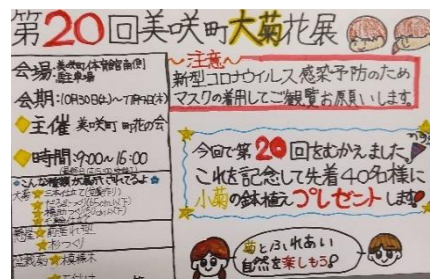 第20回美咲町大菊花展
会場:美咲町体育館南側
駐車場
会期:10月30日(土)~11月
主催 美咲町 町花の会
時間:9:00~16:00
こんな種類が展示されてるよ
大菊
三本仕立て
だるま
福助
懸崖
前垂れ型
杉づくり
盆栽菊
~注意~
新型コロナウイルス感染予防のため
マスクの着用してご観覧お願いします。
今回で第20回をむかえました。
これを記念して先着40名様に
小菊の鉢植えプレゼントします!
菊とふれあい
自然を楽しもう!